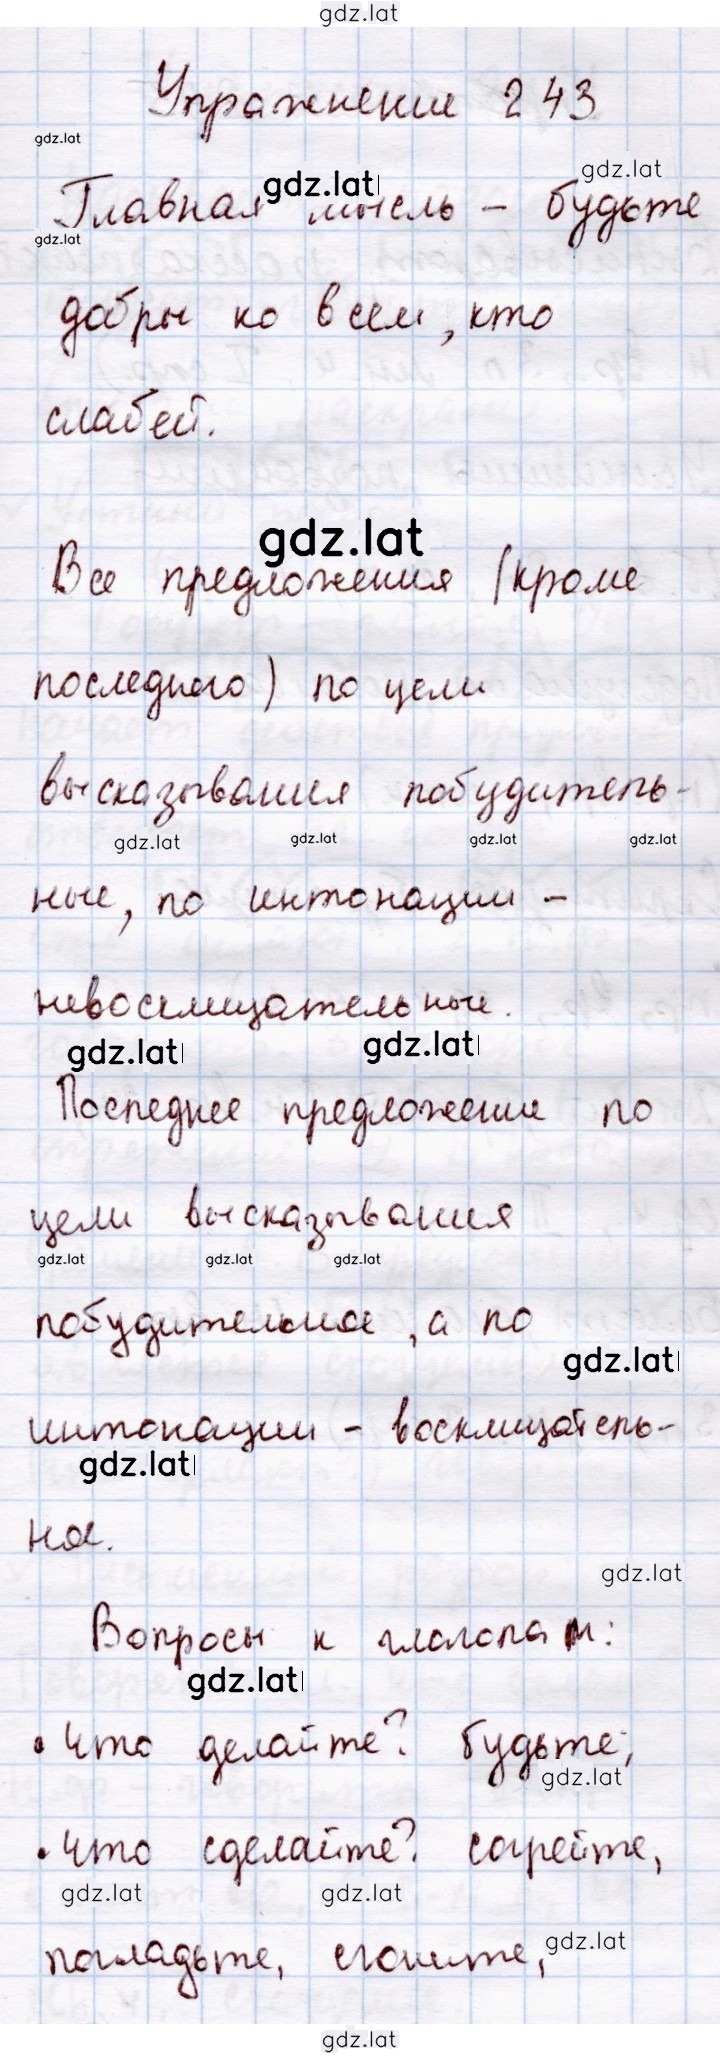 gdz.lat
Упражнение 243
gdz.lat
gdz.lat gdz.lat
Главная мысль – будьте
gdz.lat
добры ко всем, кто
слабей.
gdz.lat
Все предложения (кроме
последнего) по цели
высказывания побудитель-
gdz.lat gdz.lat gdz.lat gdz.lat
ные, по интонации –
невосклицательные.
gdz.lat gdz.lat
Последнее предложение по
цели высказывания
gdz.lat gdz.lat gdz.lat
побудительное, а по
gdz.lat
интонации – восклицатель-
gdz.lat
ное.
gdz.lat
Вопросы к глаголам:
gdz.lat
• Что делайте? будьте;
gdz.lat
• Что сделайте? согрейте,
gdz.lat gdz.lat
погладьте, сгоните,
gdz.lat
gdz.lat